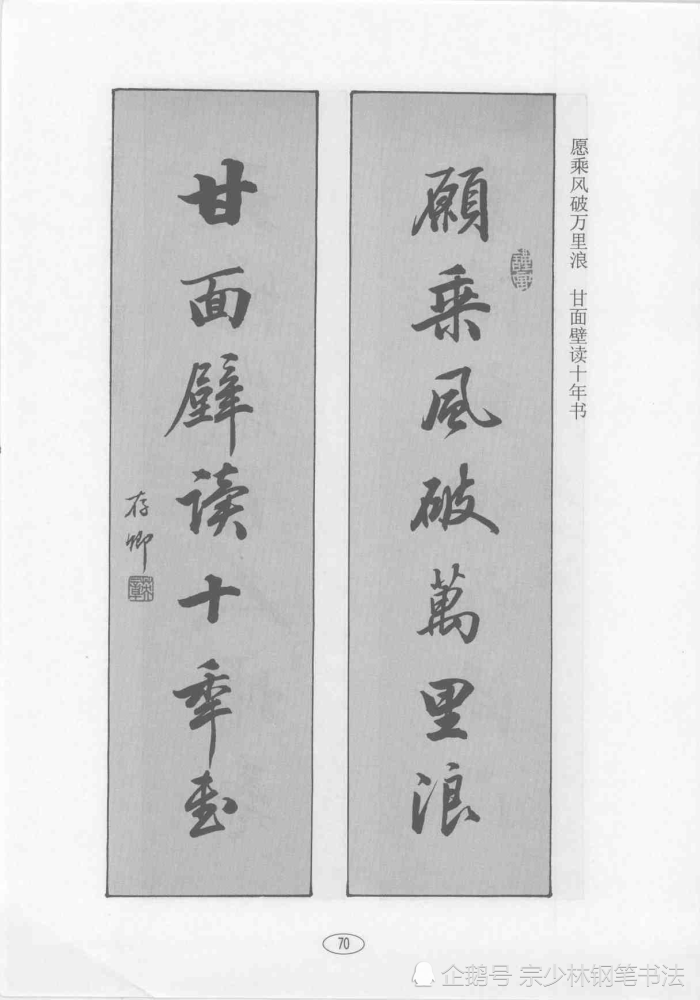 愿乘风破万里浪 甘面壁读十年书
願乘風破萬里浪
甘面壁读十年書
存卿
70
企鹅号 宗少林钢笔书法